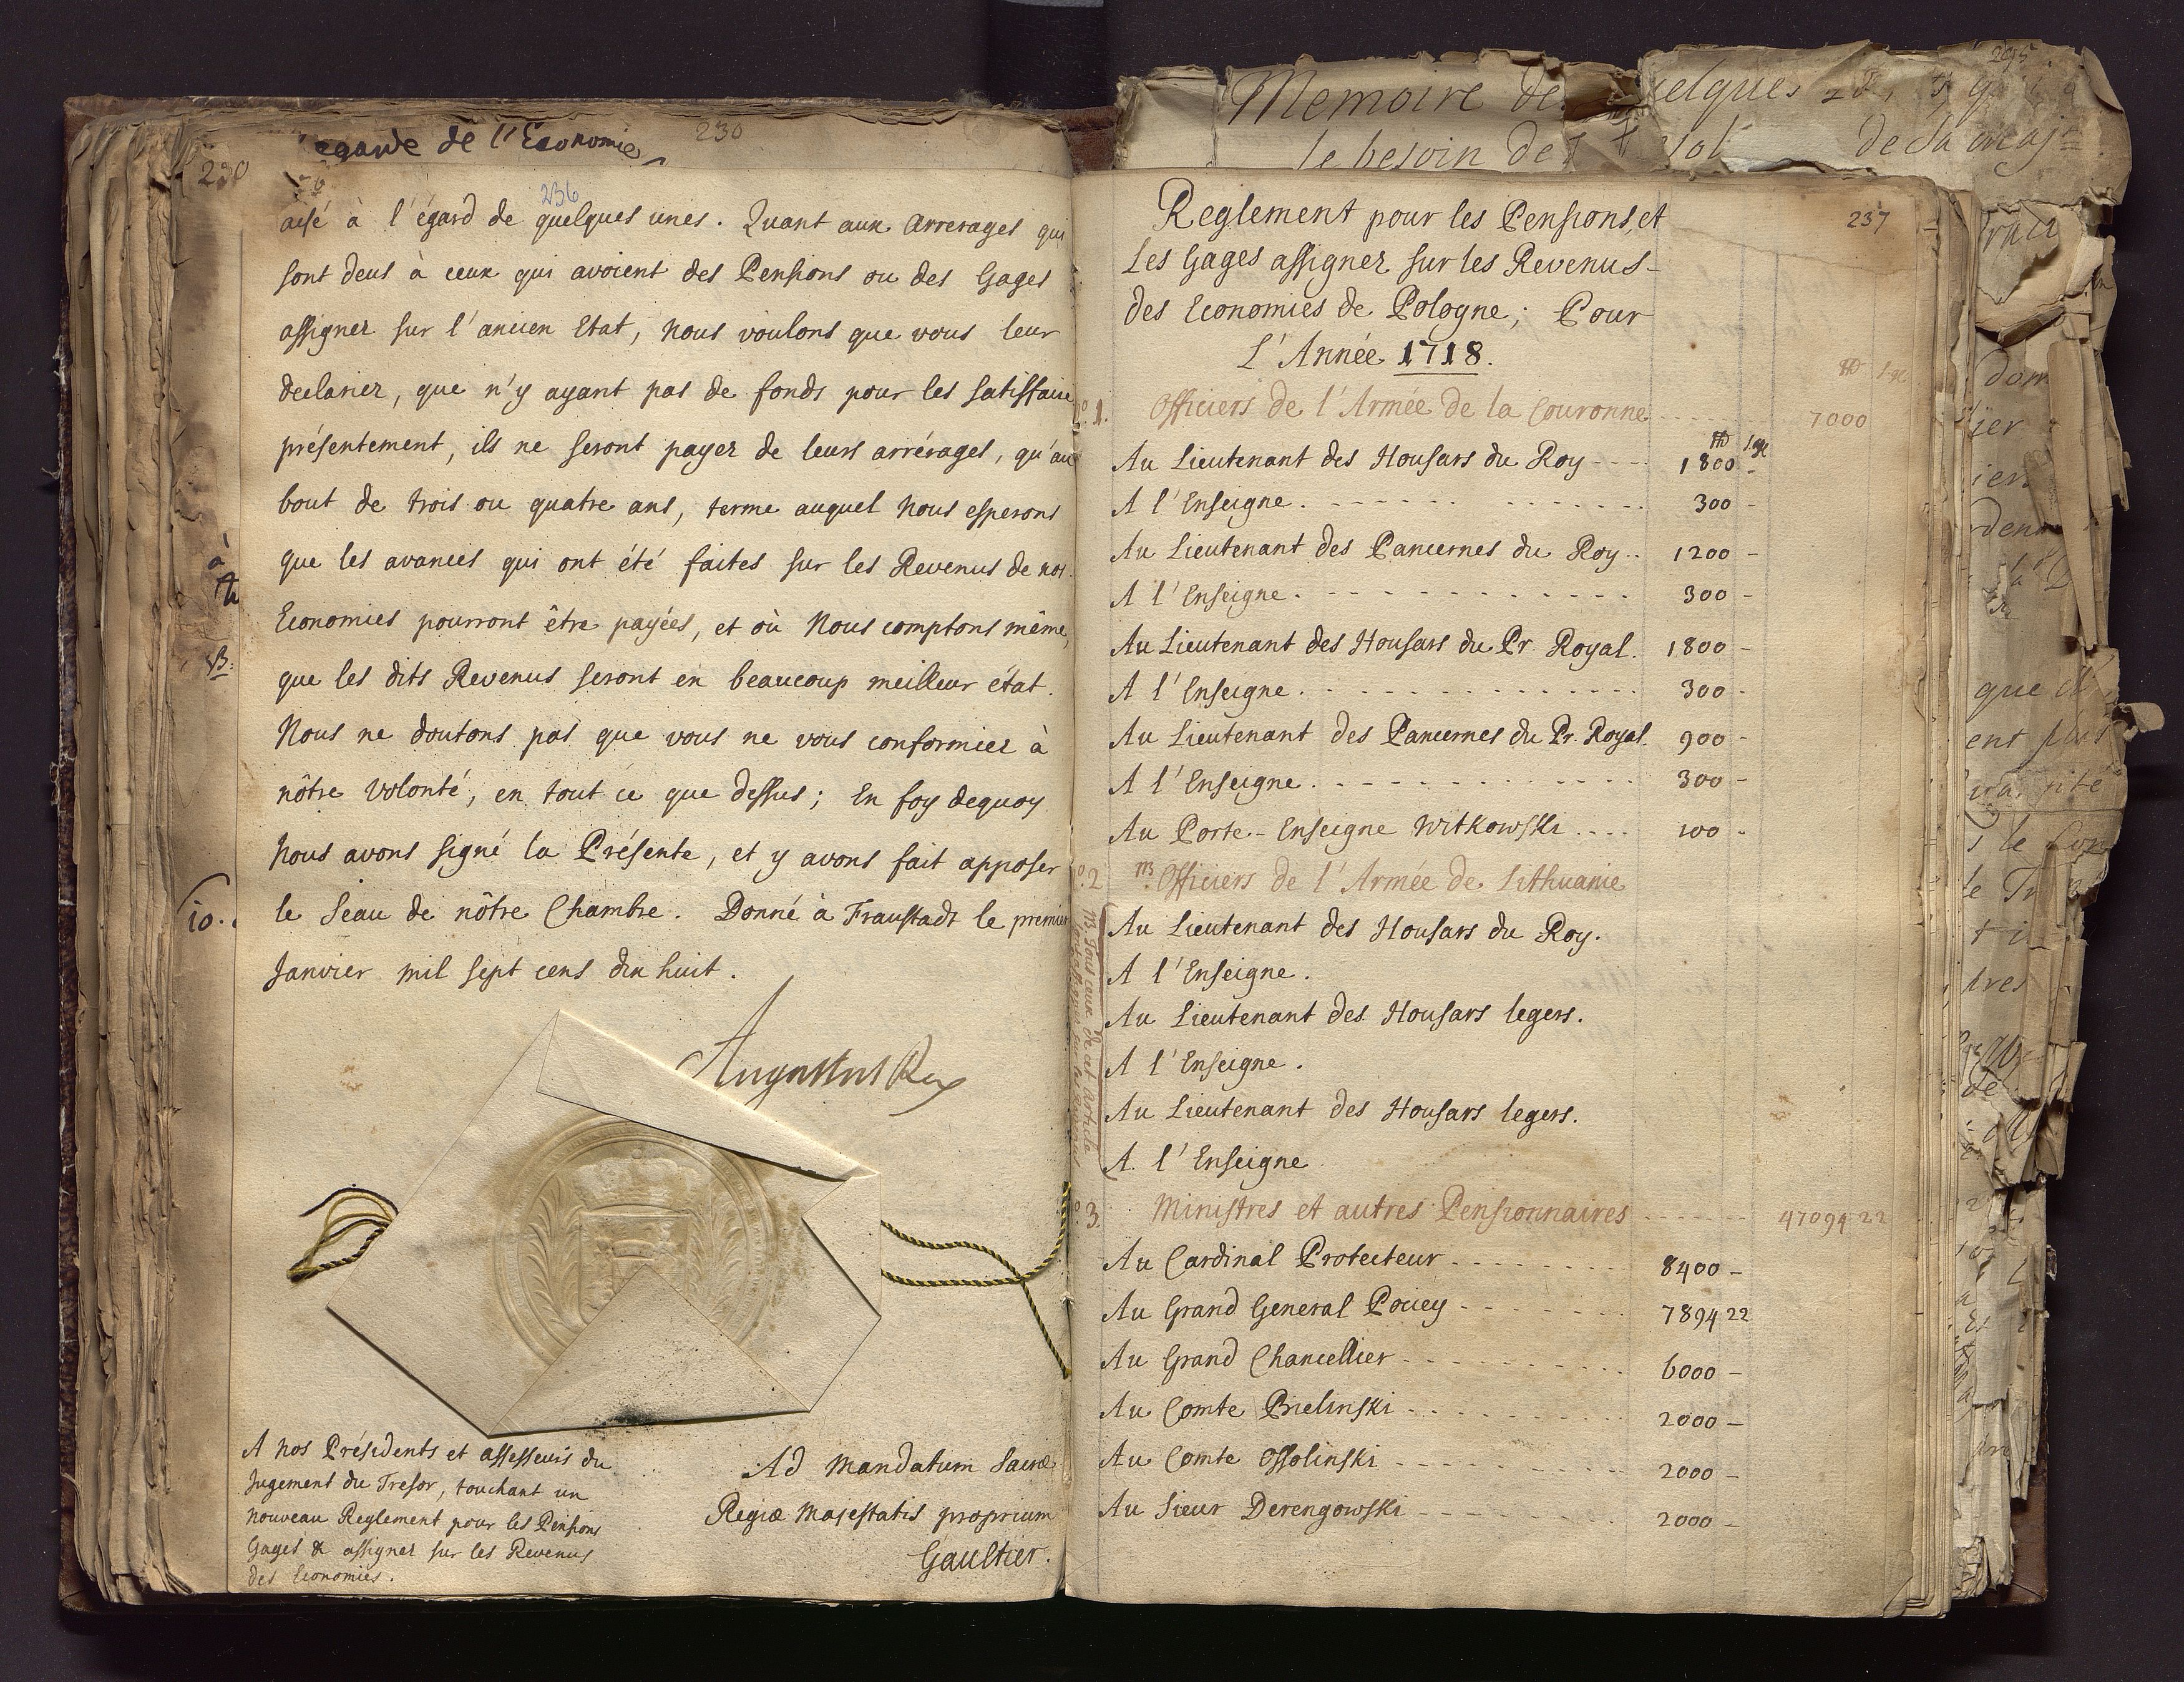 egarde de l'Economie
230
230
236
aisé à l'égard de quelques unes. Quant aux Arrerages qui
sont deus à ceux qui avoient des Pensions ou des Gages
assignez sur l'ancien Etat, nous voulons que vous leur
declariez, que n'y ayant pas de fonds pour les satisfaire
présentement, ils ne seront payez de leurs arrérages, qu'au
bout de trois ou quatre ans, terme auquel Nous esperons
que les avances qui ont été faites sur les Revenus de nos
Economies pourront être payées, et où Nous comptons même,
que les dits Revenus seront en beaucoup meilleur état.
Nous ne doutons pas que vous ne vous conformiez à
nôtre volonté, en tout ce que dessus; En foy dequoy
Nous avons signé la Présente, et y avons fait apposer
le Seau de nôtre Chambre. Donné à Fraustadt le premier
Janvier mil sept cens dix huit.
Augustus Rex
A nos Présidents et assesseurs du
Jugement du Tresor, touchant un
nouveau Reglement pour les Pensions
Gages & assignez sur les Revenus
des Economies.
Ad Mandatum Sacræ
Regiæ Majestatis proprium
Gaultier.
à
NB:
10.
Memoire de quelques
295
le besoin de
de Sa Majté
237
Reglement pour les Pensions, et
Les Gages assignez sur les Revenus
des Economies de Pologne; Pour
L'Année 1718.
1. Officiers de l'Armée de la Couronne 7000
Au Lieutenant des Housars du Roy 1800 -
A l'Enseigne. 300 -
Au Lieutenant des Pancernes du Roy 1200 -
A l'Enseigne. 300 -
Au Lieutenant des Housars du Pr. Royal. 1800 -
A l'Enseigne. 300 -
Au Lieutenant des Pancernes du Pr. Royal. 900 -
A l'Enseigne. 300 -
Au Porte-Enseigne Witkowski 100 -
2 Officiers de l'Armée de Lithuanie
NB. Tous ceux de cet Article
Au Lieutenant des Housars du Roy.
A l'Enseigne.
Au Lieutenant des Housars legers.
A l'Enseigne.
Au Lieutenant des Housars legers.
A l'Enseigne
3. Ministres et autres Pensionnaires 47094 22
Au Cardinal Protecteur 8400 -
Au Grand General Pociey 7894 22
Au Grand Chancellier 6000 -
Au Comte Bielinski 2000 -
Au Comte Ossolinski 2000 -
Au Sieur Derengowski 2000 -